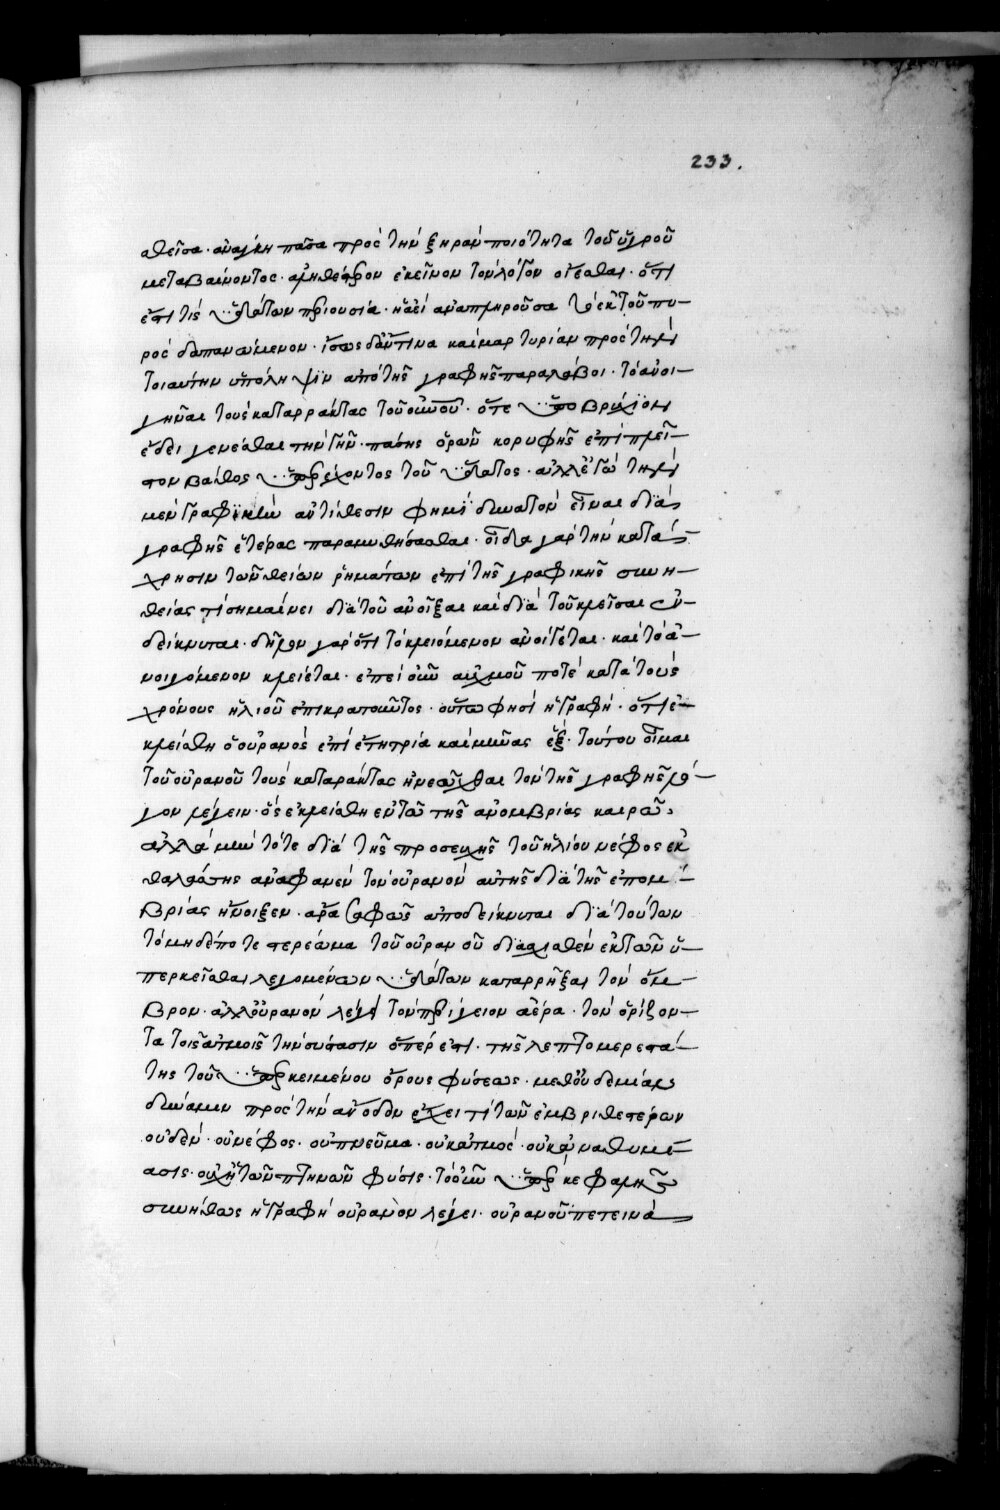 233.
θεῖσα· ἀνάγκη πᾶσα πρὸς τὴν ξηρὰν ποιότητα τοῦ ὑγροῦ
μεταβαίνοντος· ἀληθέστερον ἐκεῖνον τὸν λόγον οἴεσθαι· ὅτι
ἐστί τις ὑδάτων περιουσία· ἡ ἀεὶ ἀναπληροῦσα τὸ ἐκ τοῦ πυ-
ρὸς δαπανώμενον· ἴσως δ' ἄν τινα καὶ μαρτυρίαν πρὸς τὴν
τοιαύτην ὑπόληψιν ἀπὸ τῆς γραφῆς παραλάβοι· τὸ ἀνοι-
γῆναι τοὺς καταρράκτας τοῦ οὐνοῦ· ὅτε ὑποβρύχιον
ἔδει γενέσθαι τὴν γῆν· πάσης ὀρῶν κορυφῆς ἐπὶ πλεῖ-
στον βάθος ὑπερέχοντος τοῦ ὕδατος· ἀλλ' ἐγὼ τὴν
μὲν γραφϊκὴν ἀντίθεσιν φημὶ δυνατὸν εἶναι διὰ
γραφῆς ἑτέρας παραμυθήσασθαι· οἶδα γὰρ τὴν κατά-
χρησιν τῶν θείων ῥημάτων ἐπὶ τῆς γραφικῆς συνη-
θείας τί σημαίνει διὰ τοῦ ἀνοῖξαι καὶ διὰ τοῦ κλεῖσαι ἐν-
δείκνυται· δῆλον γὰρ ὅτι τὸ κλειόμενον ἀνοίγεται· καὶ τὸ ἀ-
νοιγόμενον κλείεται· ἐπεὶ οὖν αὐχμοῦ ποτὲ κατὰ τοὺς
χρόνους ἡλιοῦ ἐπικρατοῦντος· οὕτω φησὶ ἡ γραφή· ὅτι ἐ-
κλείσθη ὁ οὐρανὸς ἐπὶ ἔτη τρία καὶ μῆνας ἕξ· τούτου οἶμαι
τοῦ οὐρανοῦ τοὺς καταράκτας ἠνεῶχθαι τὸν τῆς γραφῆς λό-
γον λέγειν· ὃς ἐκλείσθη ἐν τῶ τῆς ἀνομβρίας καιρῶ·
ἀλλὰ μὴν τότε διὰ τῆς προσευχῆς τοῦ ἡλίου νέφος ἐκ
θαλάσσης ἀναφανὲν τὸν οὐρανὸν αὐτῆς διὰ τῆς ἐπομ-
βρίας ἤνοιξεν· ἄρα σαφῶς ἀποδείκνυται διὰ τούτων
τὸ μηδέποτε στερέωμα τοῦ οὐρανοῦ διασχισθὲν ἐκ τῶν ὑ-
περκεῖσθαι λεγομένων ὑδάτων καταρρῆξαι τὸν ὄμ-
βρον· ἀλλ' οὐρανὸν λέγει τὸν περίγειον ἀέρα· τὸν ὁρίζον-
τα τοῖς ἀτμοῖς τὴν σύστασιν ὅπερ ἐστι· τῆς λεπτομερεστά-
της τοῦ ὑπερκειμένου ὅρους φύσεως· μεθ' οὗ δεμίαν
δύναμιν πρὸς τὴν ἄνοδον ἔχει τὶ τῶν ἐμβριθεστέρων
οὐδέν· οὐ νέφος· οὐ πνεῦμα· οὐκ ἀτμός· οὐκ ἀναθυμί-
ασις· οὐχ ἡ τῶν πτηνῶν φύσις· τὸ οὖν ὑπὲρ κεφαλῆς
συνήθως ἡ γραφὴ οὐρανὸν λέγει· οὐρανοῦ πετεινὰ